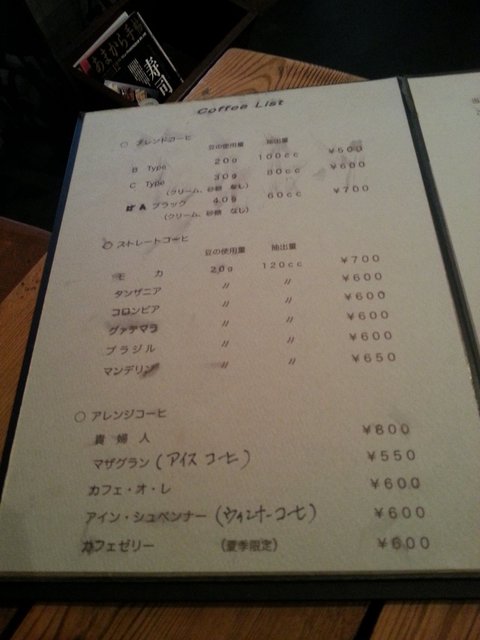 あまから手帖
寿司
Coffee List
○ ブレンドコーヒ
豆の使用量 抽出量
B Type 20g 100cc ¥500
C Type 30g 80cc ¥600
(クリーム、砂糖 なし)
ブラック 40g 60cc ¥700
(クリーム、砂糖 なし)
○ ストレートコーヒ
豆の使用量 抽出量
モカ 20g 120cc ¥700
タンザニア 〃 〃 ¥600
コロンビア 〃 〃 ¥600
グァテマラ 〃 〃 ¥600
ブラジル 〃 〃 ¥600
マンデリン 〃 〃 ¥650
○ アレンジコーヒ
貴婦人 ¥600
マザグラン (アイス コーヒ) ¥550
カフェ・オ・レ ¥600
アイン・シュペンナー (ウィンナーコーヒ) ¥600
カフェゼリー (夏季限定) ¥600